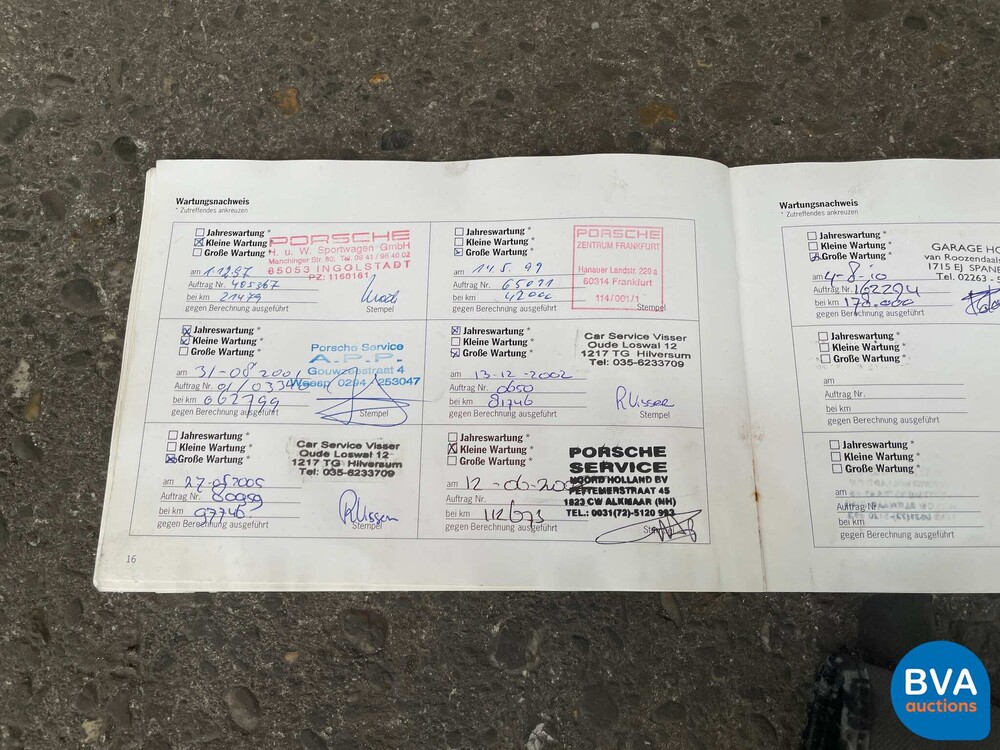 Wartungsnachweis
* Zutreffendes ankreuzen
Jahreswartung *
Kleine Wartung *
Große Wartung *
am 1.12.97
Auftrag Nr. 405367
bei km 21479
gegen Berechnung ausgeführt
PORSCHE
H. u. W. Sportwagen GmbH
Manchinger Str. 80, Tel. 08 41 / 96 40 02
85053 INGOLSTADT
PZ: 1160161
Stempel
Jahreswartung *
Kleine Wartung *
Große Wartung *
am 14.5.99
Auftrag Nr. 65021
bei km 42000
gegen Berechnung ausgeführt
PORSCHE
ZENTRUM FRANKFURT
Hanauer Landstr. 220 a
60314 Frankfurt
114/001/1
Stempel
Jahreswartung *
Kleine Wartung *
Große Wartung *
am 31-08-2001
Auftrag Nr. 01/03346
bei km 062799
gegen Berechnung ausgeführt
Porsche Service
A.P.P.
Gouwzeestraat 4
Weesp 0294 253047
Stempel
Jahreswartung *
Kleine Wartung *
Große Wartung *
am 13-12-2002
Auftrag Nr. 0650
bei km 81746
gegen Berechnung ausgeführt
Car Service Visser
Oude Loswal 12
1217 TG Hilversum
Tel: 035-6233709
RVisser
Stempel
Jahreswartung *
Kleine Wartung *
Große Wartung *
am 27-05-2005
Auftrag Nr. 80959
bei km 97746
gegen Berechnung ausgeführt
Car Service Visser
Oude Loswal 12
1217 TG Hilversum
Tel: 035-6233709
RVisser
Stempel
Jahreswartung *
Kleine Wartung *
Große Wartung *
am 12-06-200
Auftrag Nr.
bei km 112673
gegen Berechnung ausgeführt
PORSCHE
SERVICE
NOORD HOLLAND BV
PETTEMERSTRAAT 45
1823 CW ALKMAAR (NH)
TEL.: 0031(72)-5120 993
16
Wartungsnachweis
* Zutreffendes ankreuzen
Jahreswartung *
Kleine Wartung *
Große Wartung *
am 4-8-10
Auftrag Nr. 162294
bei km 178.000
gegen Berechnung ausgeführt
GARAGE HO
van Roozendaals
1715 EJ SPAN
Tel. 02263 - 5
Jahreswartung *
Kleine Wartung *
Große Wartung *
am
Auftrag Nr.
bei km
gegen Berechnung ausgeführt
Jahreswartung *
Kleine Wartung *
Große Wartung *
am
Auftrag Nr.
bei km
gegen Berechnung ausgeführt
BVA
auctions